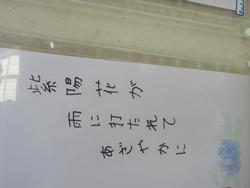 紫陽花が
雨に打たれて
あざやかに